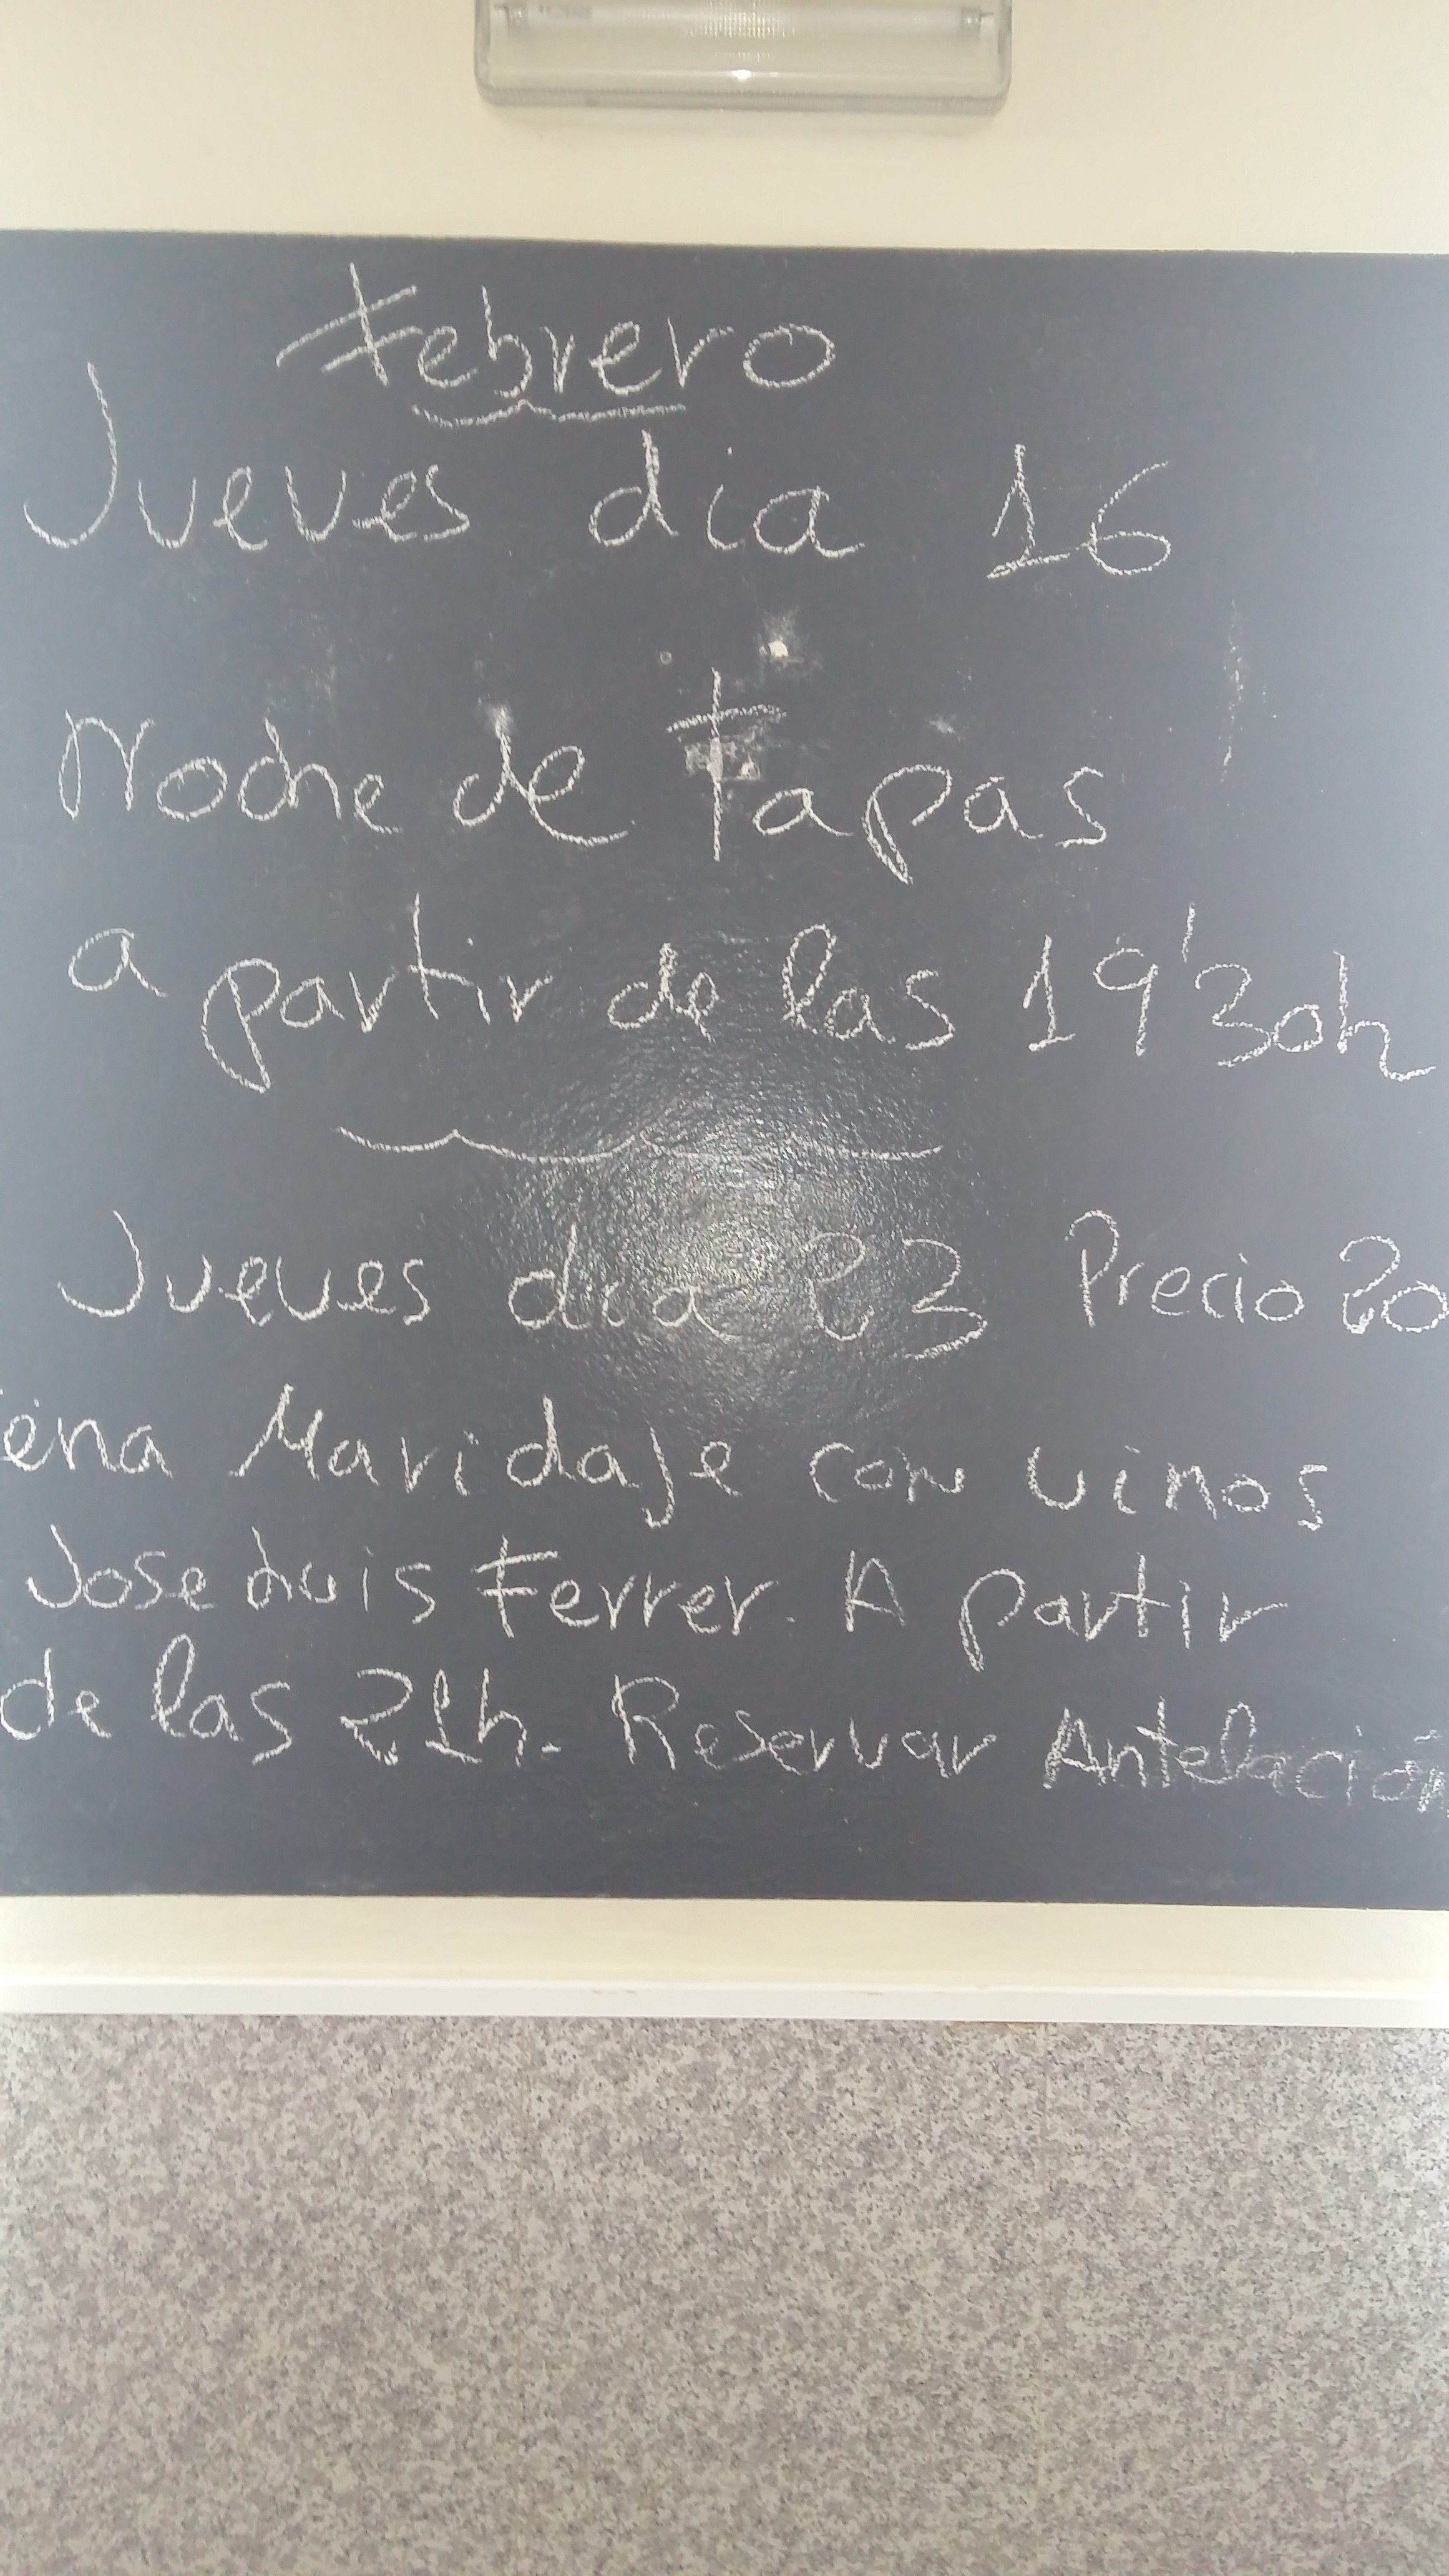 Febrero
Jueves dia 16
Noche de tapas
a partir de las 19'30h
Jueves dia 23 Precio 20
ena Maridaje con vinos
Jose Luis Ferrer. A partir
de las 21h. Reservar Antelación